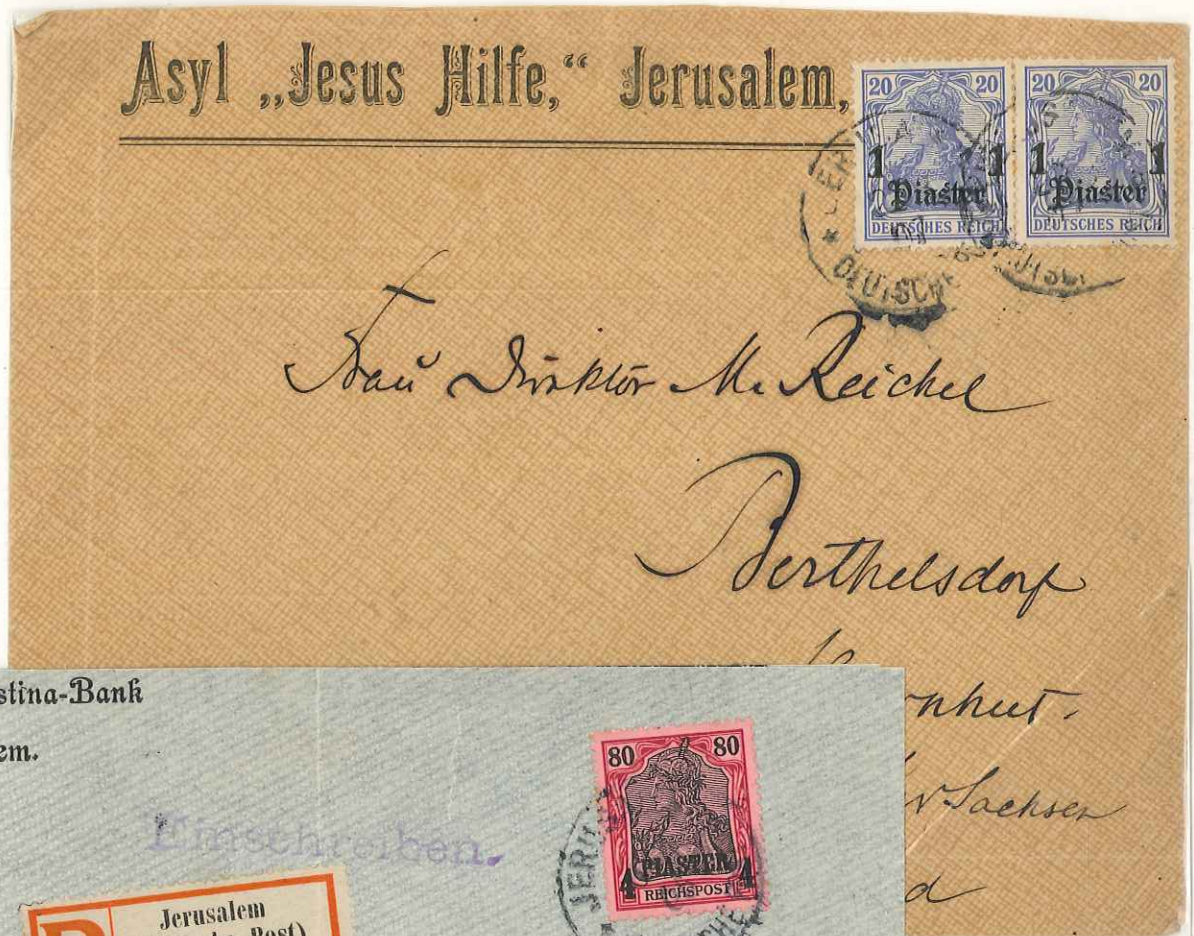 Asyl „Jesus Hilfe,“ Jerusalem,
20 20
1 1
Piaster
DEUTSCHES REICH
20 20
1 1
Piaster
DEUTSCHES REICH
DEUTSCHE
Frau Direktor M. Reichel
Berthelsdorf
Sachsen
stina-Bank
em.
Einschreiben.
80 80
PIASTER
4 4
REICHSPOST
JERU
R
Jerusalem
Post)